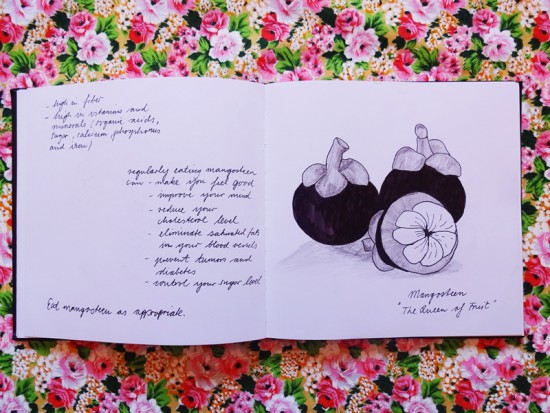 - high in fiber
- high in vitamins and
minerals (organic acids,
sugar, calcium, phosphorus
and iron)
regularly eating mangosteen
can - make you feel good
- improve your mind
- reduce your
cholesterol level
- eliminate saturated fats
in your blood vessels
- prevent tumors and
diabetes
- control your sugar level
Eat mangosteen as appropriate.
Mangosteen
"The Queen of Fruit"